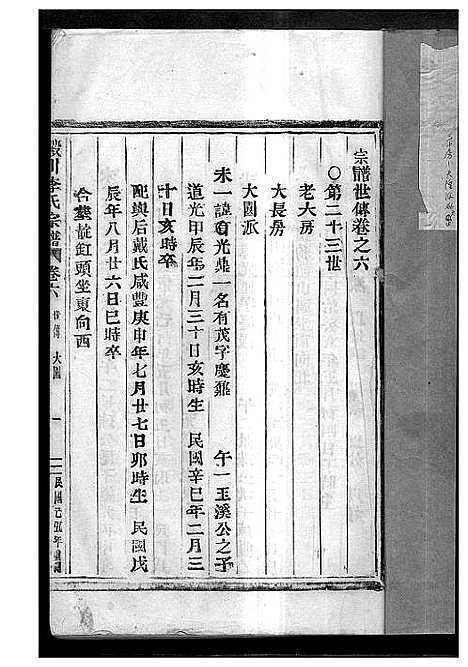 宗譜世傳卷之六
○第二十三世
老大房
大長房
大園派
未一諱有光鼎一名有茂字慶鼎 午一玉溪公之子
道光甲辰年二月三十日亥時生 民國辛巳年二月三
十日亥時卒
配與后戴氏咸豐庚申年七月廿七日卯時生 民國戊
辰年八月廿六日巳時卒
合葬 缸頭坐東向西
李氏宗譜 卷六 世傳 大園 一